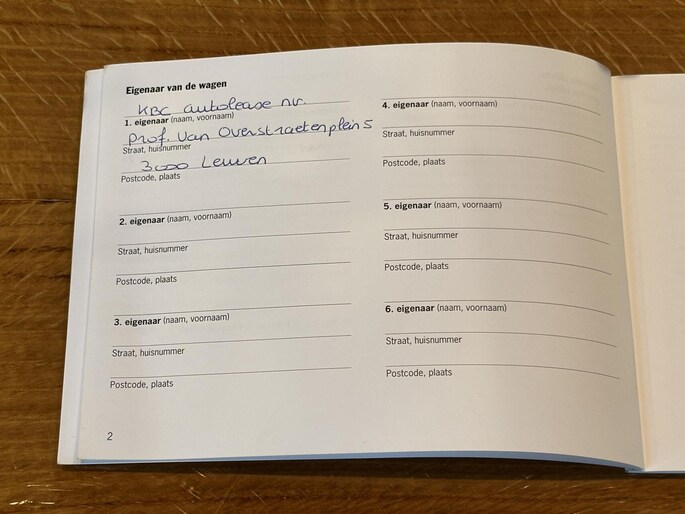 Eigenaar van de wagen
KBC autolease nv.
1. eigenaar (naam, voornaam)
Prof. Van Overstraetenplein 5
Straat, huisnummer
3000 Leuven
Postcode, plaats
2. eigenaar (naam, voornaam)
Straat, huisnummer
Postcode, plaats
3. eigenaar (naam, voornaam)
Straat, huisnummer
Postcode, plaats
2
4. eigenaar (naam, voornaam)
Straat, huisnummer
Postcode, plaats
5. eigenaar (naam, voornaam)
Straat, huisnummer
Postcode, plaats
6. eigenaar (naam, voornaam)
Straat, huisnummer
Postcode, plaats